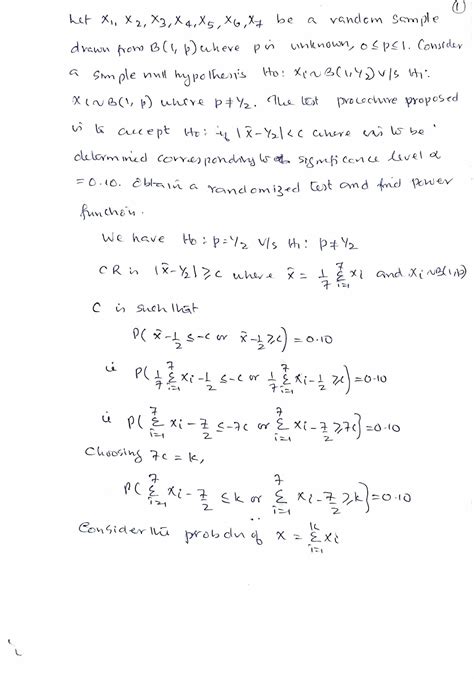 (1)
Let X₁, X₂, X₃, X₄, X₅, X₆, X₇ be a random sample
drawn from B(1, p) where p is unknown, 0≤p≤1. Consider
a simple null hypothesis H₀: Xᵢ~B(1, 1/2) v/s H₁:
Xᵢ~B(1, p) where p≠1/2. The test procedure proposed
is to accept H₀: if |x̄-1/2|<c where c is to be
determined corresponding to significance level α
=0.10. Obtain a randomized test and find power
function.
We have H₀: p=1/2 v/s H₁: p≠1/2
CR is |x̄-1/2|≥c where x̄ = 1/7 Σᵢ₌₁⁷ xᵢ and xᵢ~B(1,p)
C is such that
P(x̄-1/2 ≤-c or x̄-1/2 ≥c)=0.10
ie P(1/7 Σᵢ₌₁⁷ xᵢ-1/2 ≤-c or 1/7 Σᵢ₌₁⁷ xᵢ-1/2 ≥c)=0.10
ie P(Σᵢ₌₁⁷ xᵢ-7/2 ≤-7c or Σᵢ₌₁⁷ xᵢ-7/2 ≥7c)=0.10
Choosing 7c=k,
P(Σᵢ₌₁⁷ xᵢ-7/2 ≤k or Σᵢ₌₁⁷ xᵢ-7/2 ≥k)=0.10
Consider the prob dn of x = Σᵢ₌₁ᵏ xᵢ